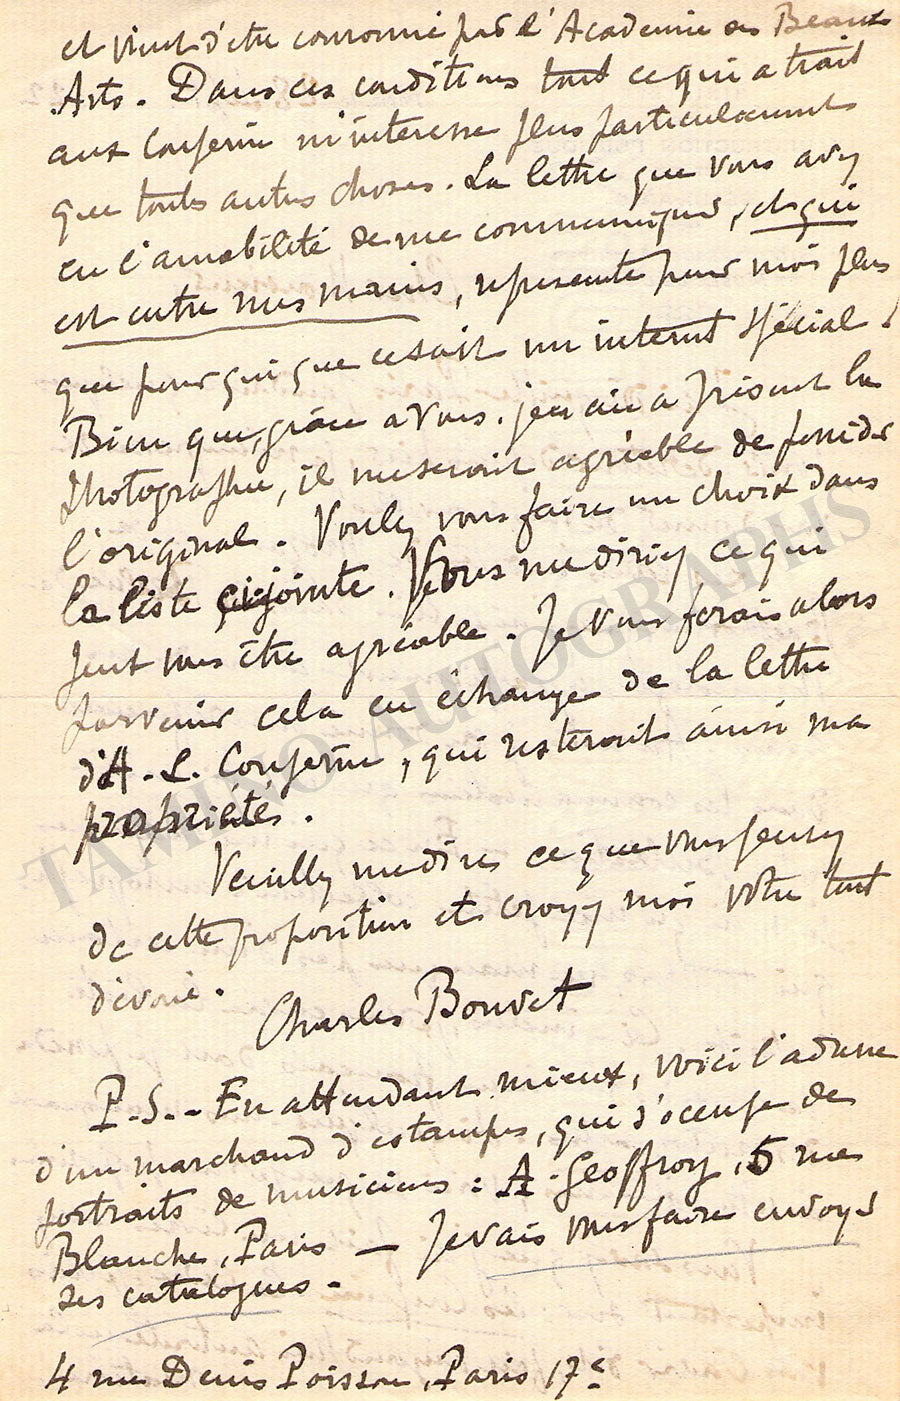 et vient d'être couronné par l'Académie des Beaux
Arts. Dans ces conditions tout ce qui a trait
aux Couperin m'intéresse plus particulièrement
que toutes autres choses. La lettre que vous avez
eu l'amabilité de me communiquer, et qui
est entre mes mains, représente pour moi plus
que pour qui que ce soit un intérêt spécial.
Bien que, grâce à vous, j'en aie à présent la
photographie, il me serait agréable de posséder
l'original. Voulez vous faire un choix dans
la liste ci-jointe. Vous me direz ce qui
peut vous être agréable. Je vous ferais alors
parvenir cela en échange de la lettre
d'A.-L. Couperin, qui resterait ainsi ma
propriété.
Veuillez me dire ce que vous pensez
de cette proposition et croyez moi votre tout
dévoué.
Charles Bouvet
P.S. - En attendant mieux, voici l'adresse
d'un marchand d'estampes, qui s'occupe de
portraits de musiciens : A. Geoffroy, 5 rue
Blanche, Paris — Je vais vous faire envoyer
ses catalogues -
4 rue Denis Poisson, Paris 17e
TAMINO AUTOGRAPHS